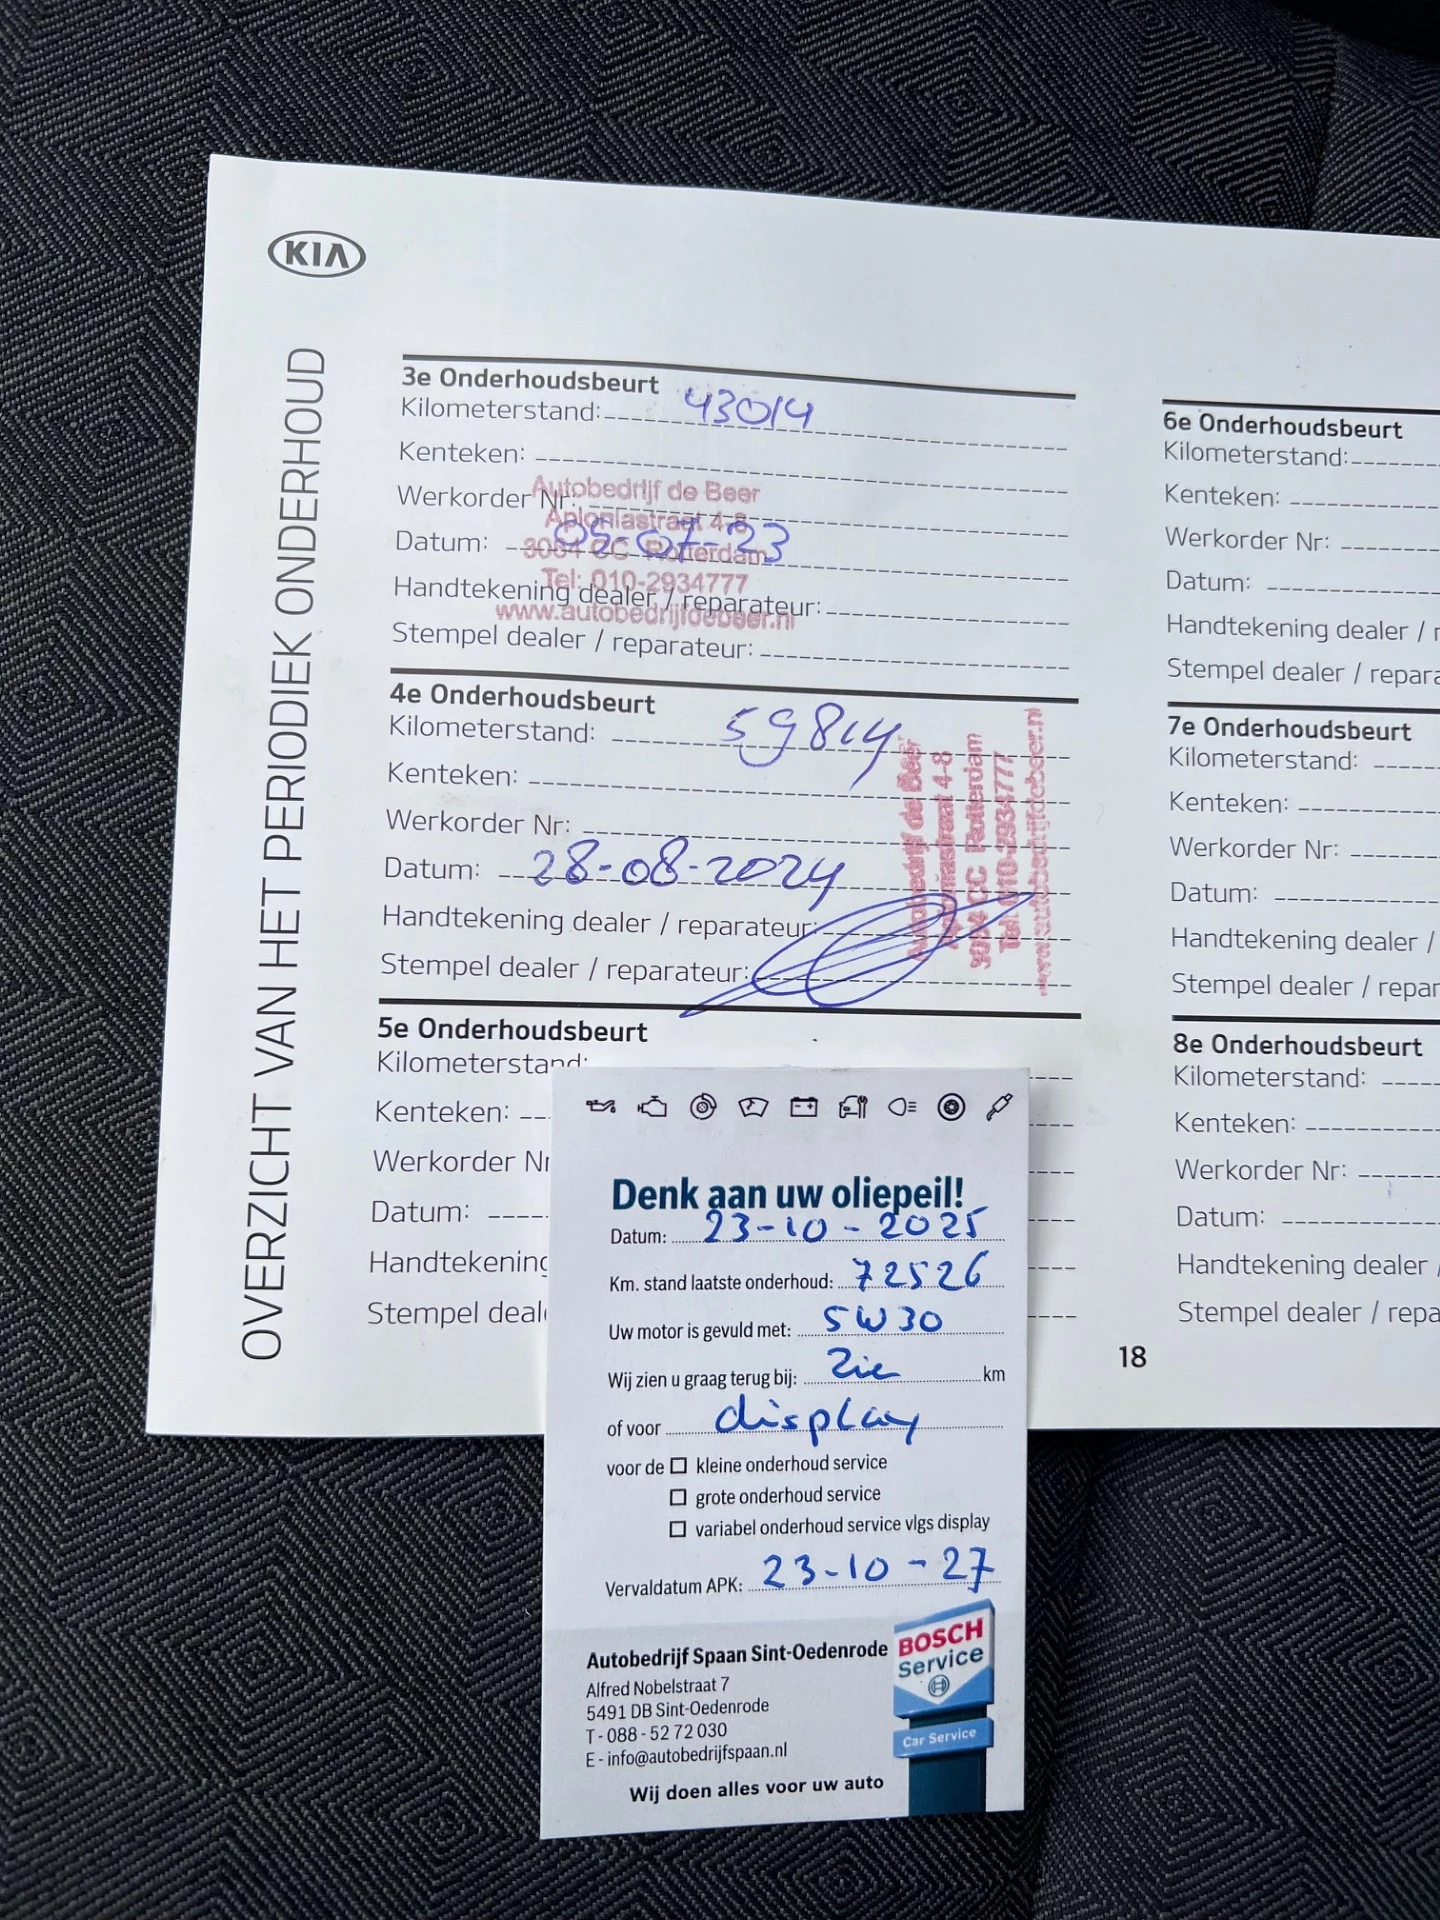 KIA
OVERZICHT VAN HET PERIODIEK ONDERHOUD
3e Onderhoudsbeurt
Kilometerstand: 43014
Kenteken:
Werkorder Nr:
Datum: 05-07-23
Handtekening dealer / reparateur:
Stempel dealer / reparateur:
Autobedrijf de Beer
Aploniastraat 4-8
3084 CC Rotterdam
Tel: 010-2934777
www.autobedrijfdebeer.nl
4e Onderhoudsbeurt
Kilometerstand: 59814
Kenteken:
Werkorder Nr:
Datum: 28-08-2024
Handtekening dealer / reparateur:
Stempel dealer / reparateur:
Autobedrijf de Beer
Aploniastraat 4-8
3084 CC Rotterdam
Tel: 010-2934777
www.autobedrijfdebeer.nl
5e Onderhoudsbeurt
Kilometerstand:
Kenteken:
Werkorder Nr
Datum:
Handtekening
Stempel deal
6e Onderhoudsbeurt
Kilometerstand:
Kenteken:
Werkorder Nr:
Datum:
Handtekening dealer / r
Stempel dealer / repara
7e Onderhoudsbeurt
Kilometerstand:
Kenteken:
Werkorder Nr:
Datum:
Handtekening dealer /
Stempel dealer / repar
8e Onderhoudsbeurt
Kilometerstand:
Kenteken:
Werkorder Nr:
Datum:
Handtekening dealer /
Stempel dealer / repa
18
Denk aan uw oliepeil!
Datum: 23-10-2025
Km. stand laatste onderhoud: 72526
Uw motor is gevuld met: 5W30
Wij zien u graag terug bij: Zie km
of voor display
voor de kleine onderhoud service
grote onderhoud service
variabel onderhoud service vlgs display
Vervaldatum APK: 23-10-27
Autobedrijf Spaan Sint-Oedenrode
Alfred Nobelstraat 7
5491 DB Sint-Oedenrode
T - 088 - 52 72 030
E - info@autobedrijfspaan.nl
Wij doen alles voor uw auto
BOSCH
Service
Car Service